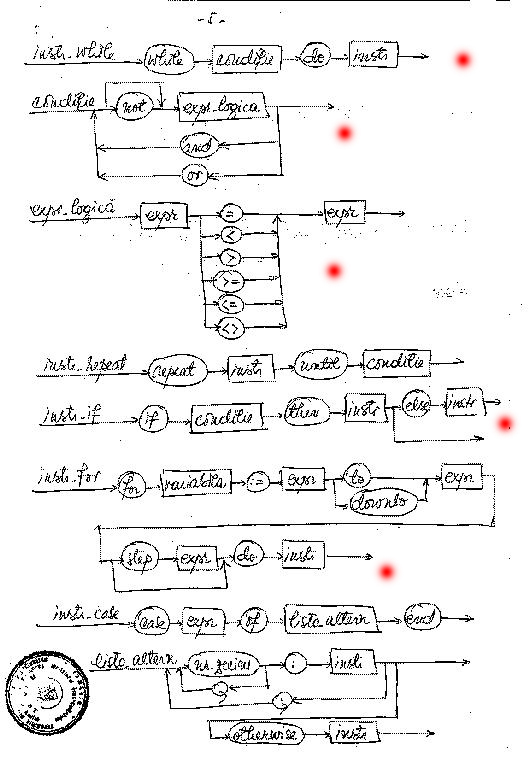 -5-
instr-while while conditie do instr
conditie not expr-logica
and
or
expr-logică expr = expr
<
>
>=
<=
<>
instr-repeat repeat instr until conditie
instr-if if conditie then instr else instr
instr-for for variabila := expr to expr
downto
step expr do instr
instr-case case expr of lista altern end
lista altern : instr
,
;
otherwise instr